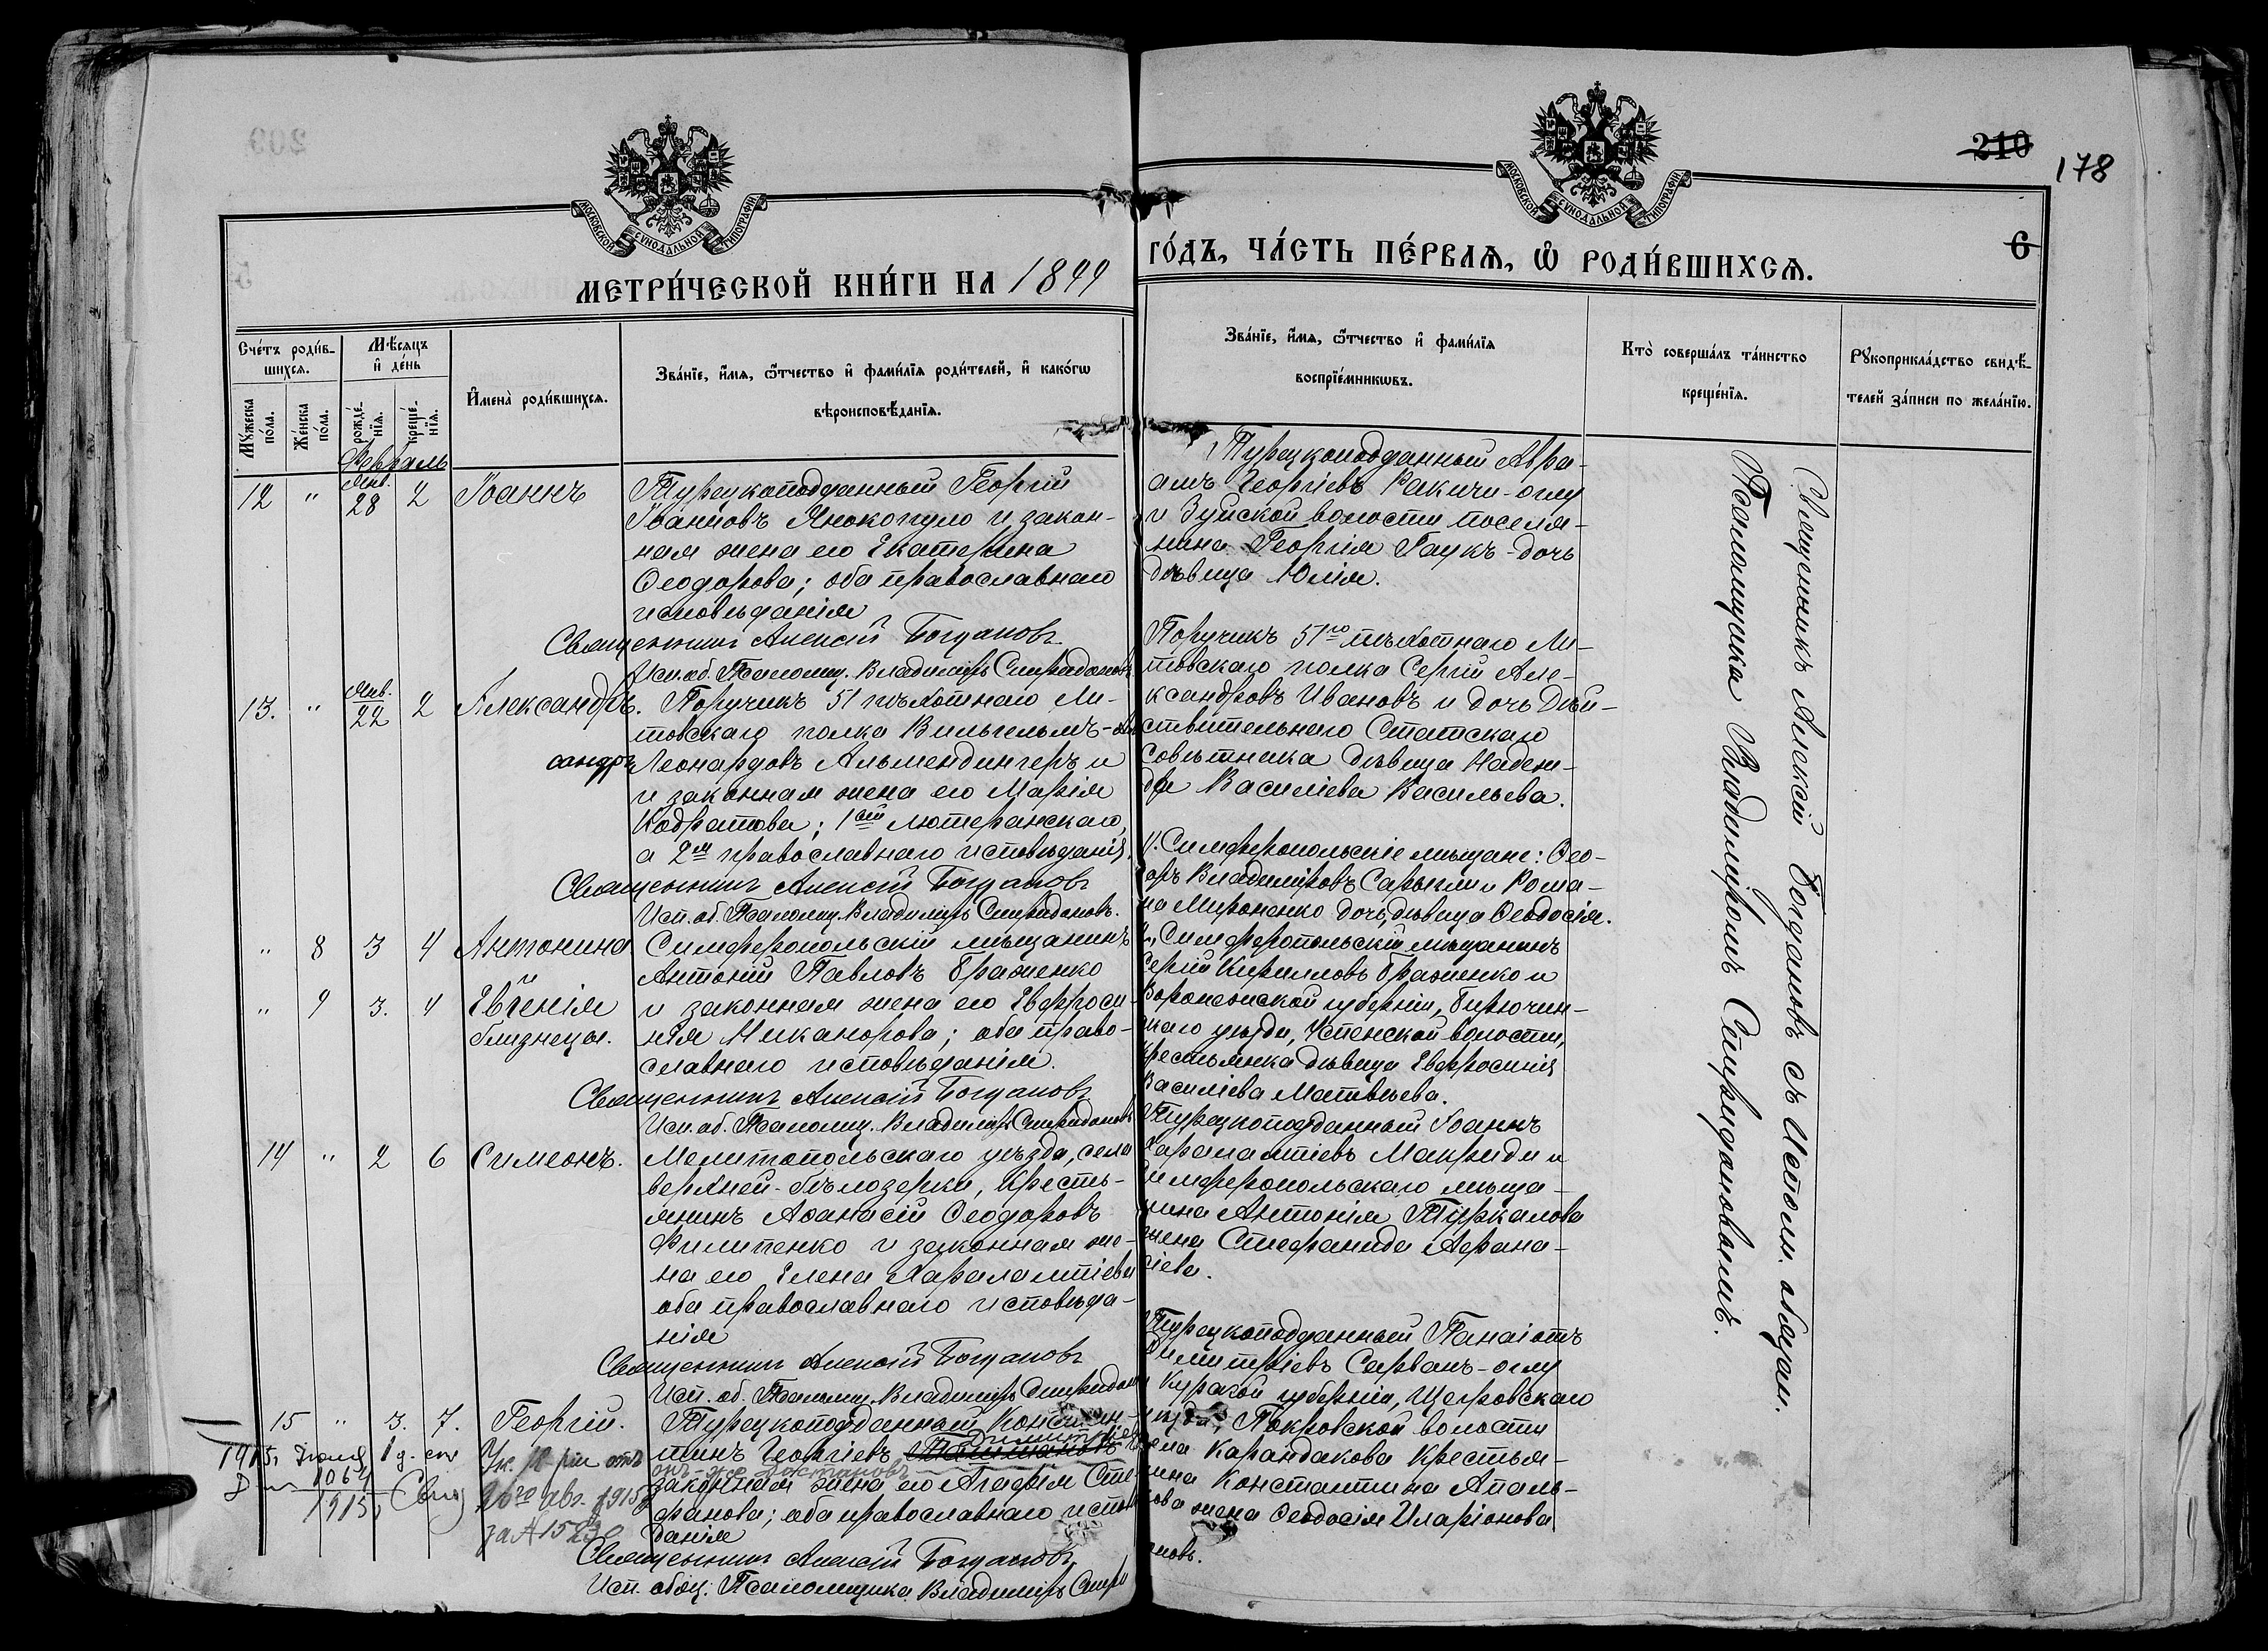 210
178
6
МОСКОВСКОЙ СѴНОДАЛЬНОЙ ТИПОГРАФІИ
МОСКОВСКОЙ СѴНОДАЛЬНОЙ ТИПОГРАФІИ
МЕТРИ́ЧЕСКОЙ КНИ́ГИ НА 1899
ГО́ДЪ, ЧА́СТЬ ПЕ́РВАѦ, Ѽ РОДИ́ВШИХСѦ.
Сче́тъ роди́в-
шихсѧ.
Мꙋ́жеска
по́ла.
Же́нска
по́ла.
Мѣ́сѧцъ
и҆ де́нь
рожде́-
нїѧ.
креще́-
нїѧ.
И҆мена̀ роди́вшихсѧ.
Зва́нїе, и҆́мѧ, ѻ҆́тчество и҆ фами́лїѧ роди́телей, и҆ како́гѡ
вѣроисповѣ́данїѧ.
Зва́нїе, и҆́мѧ, ѻ҆́тчество и҆ фами́лїѧ
воспрїе́мникѡвъ.
Кто̀ соверша́лъ та́инство
креще́нїѧ.
Рꙋкоприкла́дство свидѣ́-
телей за́писи по жела́нїю.
Февраль
12 " Янв. 28 2 Іоаннъ
Турецкоподданный Георгій
Іоанновъ Янокопуло и закон-
ная жена его Екатерина
Ѳеодорова; оба православнаго
исповѣданія
Священникъ Алексій Богдановъ
Исп. об. Псаломщ. Владиміръ Спиридоновъ
Турецкоподданный Авра-
амъ Георгіевъ Ракичи-оглу
и Зуйской волости поселя-
нина Георгія Гаукъ-дочь
дѣвица Юлія.
13. " Янв. 22 2 Александръ.
Поручикъ 51 пѣхотнаго Ли-
товскаго полка Вильгельмъ-Але
сандръ Леонардовъ Альмендингеръ и
и законная жена его Марія
Кодратова; 1ый лютеранскаго,
а 2ая православнаго исповѣданія.
Священникъ Алексій Богдановъ
Исп. об. Псаломщ. Владиміръ Спиридоновъ.
Поручикъ 51го пѣхотнаго Ли-
товскаго полка Сергій Але-
ксандровъ Ивановъ и дочь Дѣй-
ствительнаго Статскаго
Совѣтника дѣвица Надеж-
да Василіева Васильева.
" 8 3 4 Антонина
" 9 3. 4 Евгенія
близнецы.
Симферопольскій мѣщанинъ
Антоній Павловъ Браженко
и законная жена его Евфроси-
нія Никанорова; оба право-
славнаго исповѣданія.
Священникъ Алексій Богдановъ
Исп. об. Псаломщ. Владиміръ Спиридоновъ
1. Симферопольскіе мѣщане: Ѳео-
доръ Владиміровъ Сарыгли и Рома-
на Мироненко дочь, дѣвица Ѳеодосія.
2. Симферопольскій мѣщанинъ
Сергій Кирилловъ Браженко и
Воронежской губерніи, Бирючин-
скаго уѣзда, Успенской волости,
крестьянка дѣвица Евфросинія
Василіева Матвѣева.
14 " 2 6 Симеонъ.
Мелитопольскаго уѣзда, села
верхней-бѣлозерки, кресть-
янинъ Аѳанасій Ѳеодоровъ
Филипенко и законная же-
на его Елена Харалампіева
оба православнаго исповѣда-
нія
Священникъ Алексій Богдановъ
Исп. об. Псаломщ. Владиміръ Спиридоновъ
Турецкоподданный Іоаннъ
Харалампіевъ Макриди и
Симферопольскаго мѣща-
нина Антонія Туркалова
жена Стефанида Афана-
сіева.
15 " 3. 7. Георгій.
Турецкоподданный Констан-
тинъ Георгіевъ
законная жена его Агафія Сте-
фанова; оба православнаго исповѣ
данія
Священникъ Алексій Богдановъ
Исп. обяз. Псаломщика Владиміръ Спири
Турецкоподданный Панаіотъ
Димитріевъ Сарванъ-оглу
и Курской губерніи, Щегровскаго
уѣзда, Покровской волости
села Карандакова крестья-
нина Константина Апаль-
кова жена Ѳеодосія Иларіонова
новъ.
1915, Іюля
1064
1915
26го авг. 1915
за № 1523
Священникъ Алексій Богдановъ съ исполн. обязан.
Псаломщика Владиміромъ Спиридоновымъ.